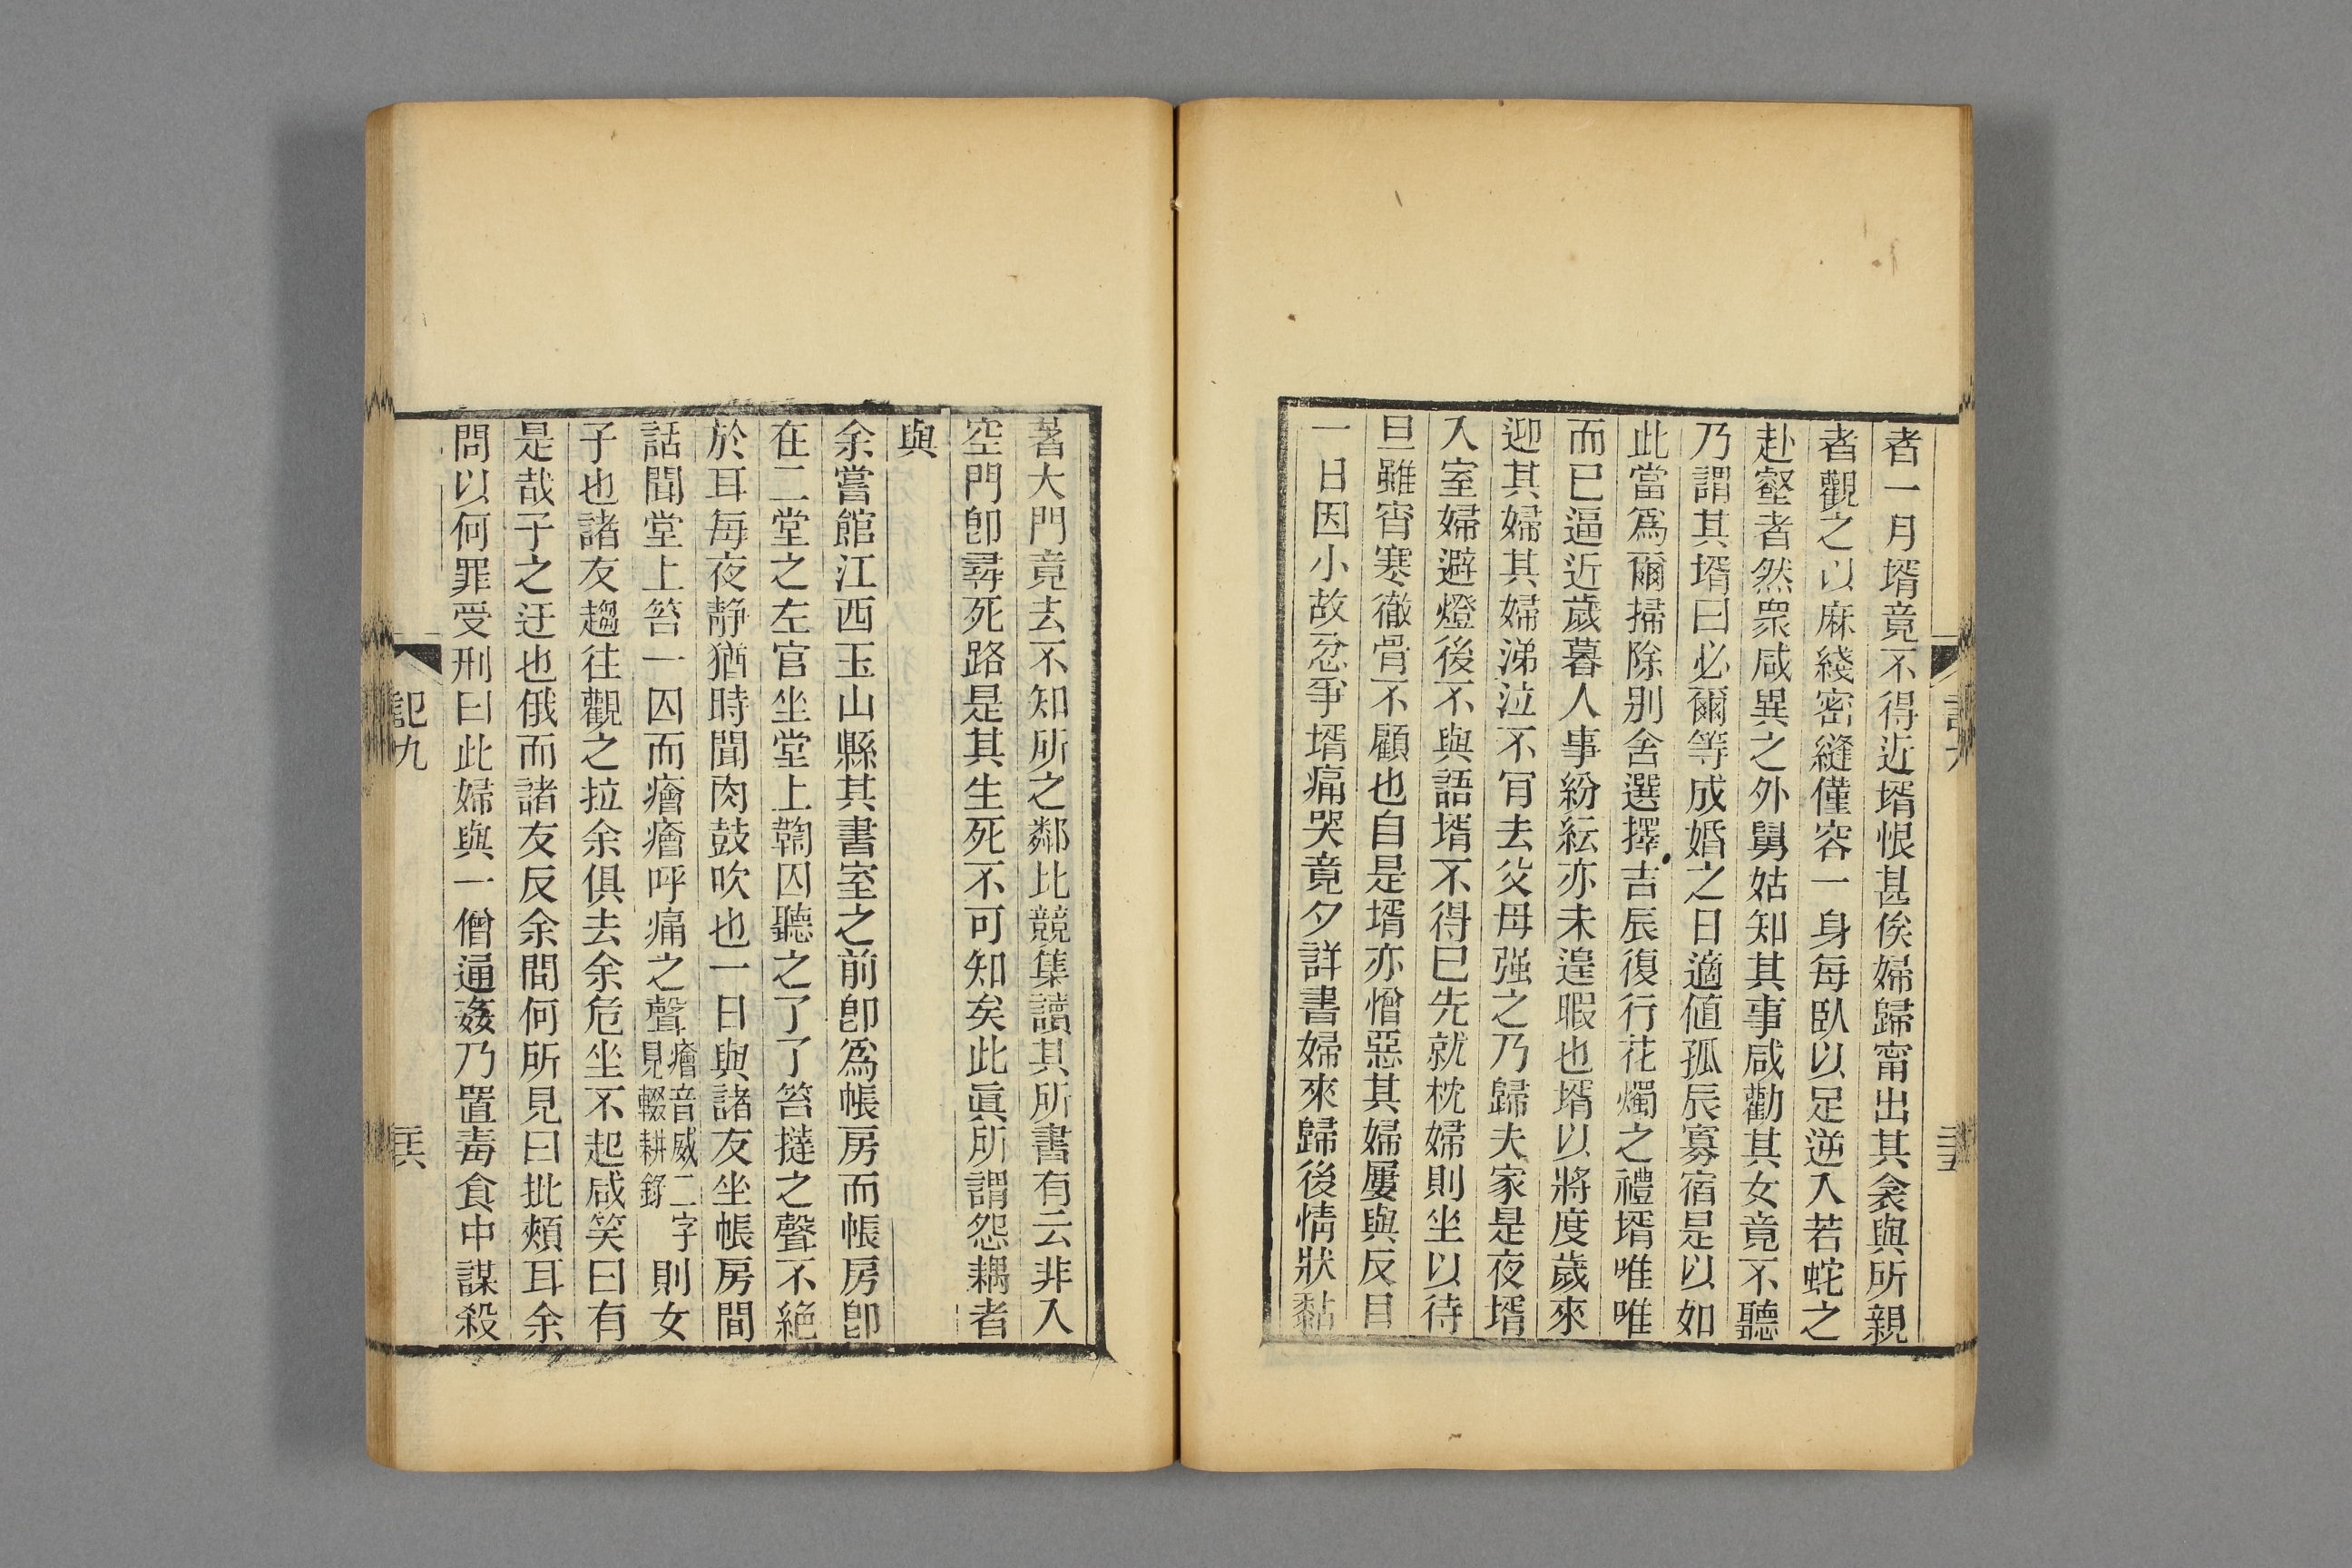 者一月壻竟不得近壻恨甚俟婦歸甯出其衾與所親
者觀之以麻綫密縫僅容一身每臥以足逆入若蛇之
赴壑者然衆咸異之外舅姑知其事咸勸其女竟不聽
乃謂其壻曰必爾等成婚之日適値孤辰寡宿是以如
此當爲爾掃除別舍選擇吉辰復行花燭之禮壻唯唯
而已逼近歲暮人事紛紜亦未遑暇也壻以將度歲來
迎其婦其婦涕泣不肎去父母强之乃歸夫家是夜壻
入室婦避燈後不與語壻不得已先就枕婦則坐以待
旦雖宵寒徹骨不顧也自是壻亦憎惡其婦屢與反目
一日因小故忿爭壻痛哭竟夕詳書婦來歸後情狀黏
著大門竟去不知所之鄰比競集讀其所書有云非入
空門卽尋死路是其生死不可知矣此眞所謂怨耦者
與
余嘗館江西玉山縣其書室之前卽爲帳房而帳房卽
在二堂之左官坐堂上鞫囚聽之了了笞撻之聲不絶
於耳每夜靜猶時聞肉鼓吹也一日與諸友坐帳房間
話聞堂上笞一囚而癐癐呼痛之聲癐音威二字見輟耕錄則女
子也諸友趨往觀之拉余俱去余危坐不起咸笑曰有
是哉子之迂也俄而諸友反余問何所見曰批頰耳余
問以何罪受刑曰此婦與一僧通姦乃置毒食中謀殺
記九